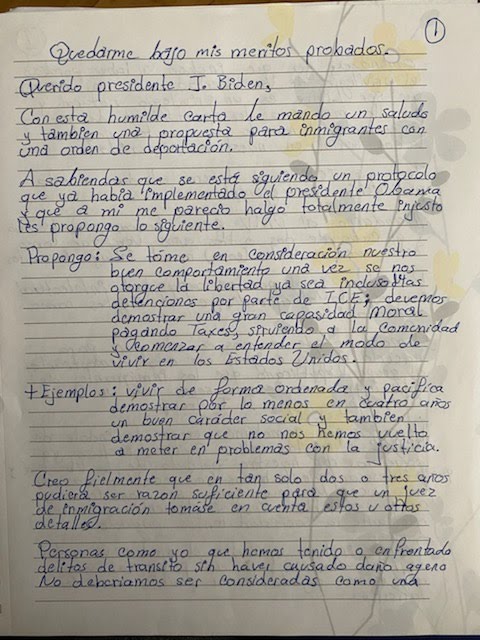 1
Quedarme bajo mis meritos probados.
Querido presidente J. Biden,
Con esta humilde carta le mando un saludo
y tambien una propuesta para inmigrantes con
una orden de deportación.
A sabiendas que se está siguiendo un protocolo
que ya habia implementado el presidente Obama
y que a mi me parecio halgo totalmente injusto
les propongo lo siguiente.
Propongo: Se tome en consideración nuestro
buen comportamiento una vez se nos
otorgue la libertad ya sea incluso tras
detenciones por parte de ICE; devemos
demostrar una gran capasidad moral
pagando Taxes, sirviendo a la comunidad
y comenzar a entender el modo de
vivir en los Estados Unidos.
+ Ejemplos: vivir de forma ordenada y pacifica
demostrar por lo menos en cuatro años
un buen carácter social y tambien
demostrar que no nos hemos vuelto
a meter en problemas con la justicia.
Creo fielmente que en tan solo dos o tres años
pudiera ser razón suficiente para que un juez
de inmigración tomase en cuenta estos u otros
detalles.
Personas como yo que hemos tenido o enfrentado
delitos de transito sin haver causado daño ageno
No deberiamos ser consideradas como una